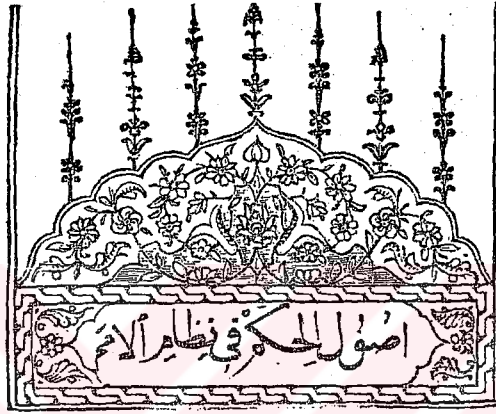 اصول الحكم في نظام الامم